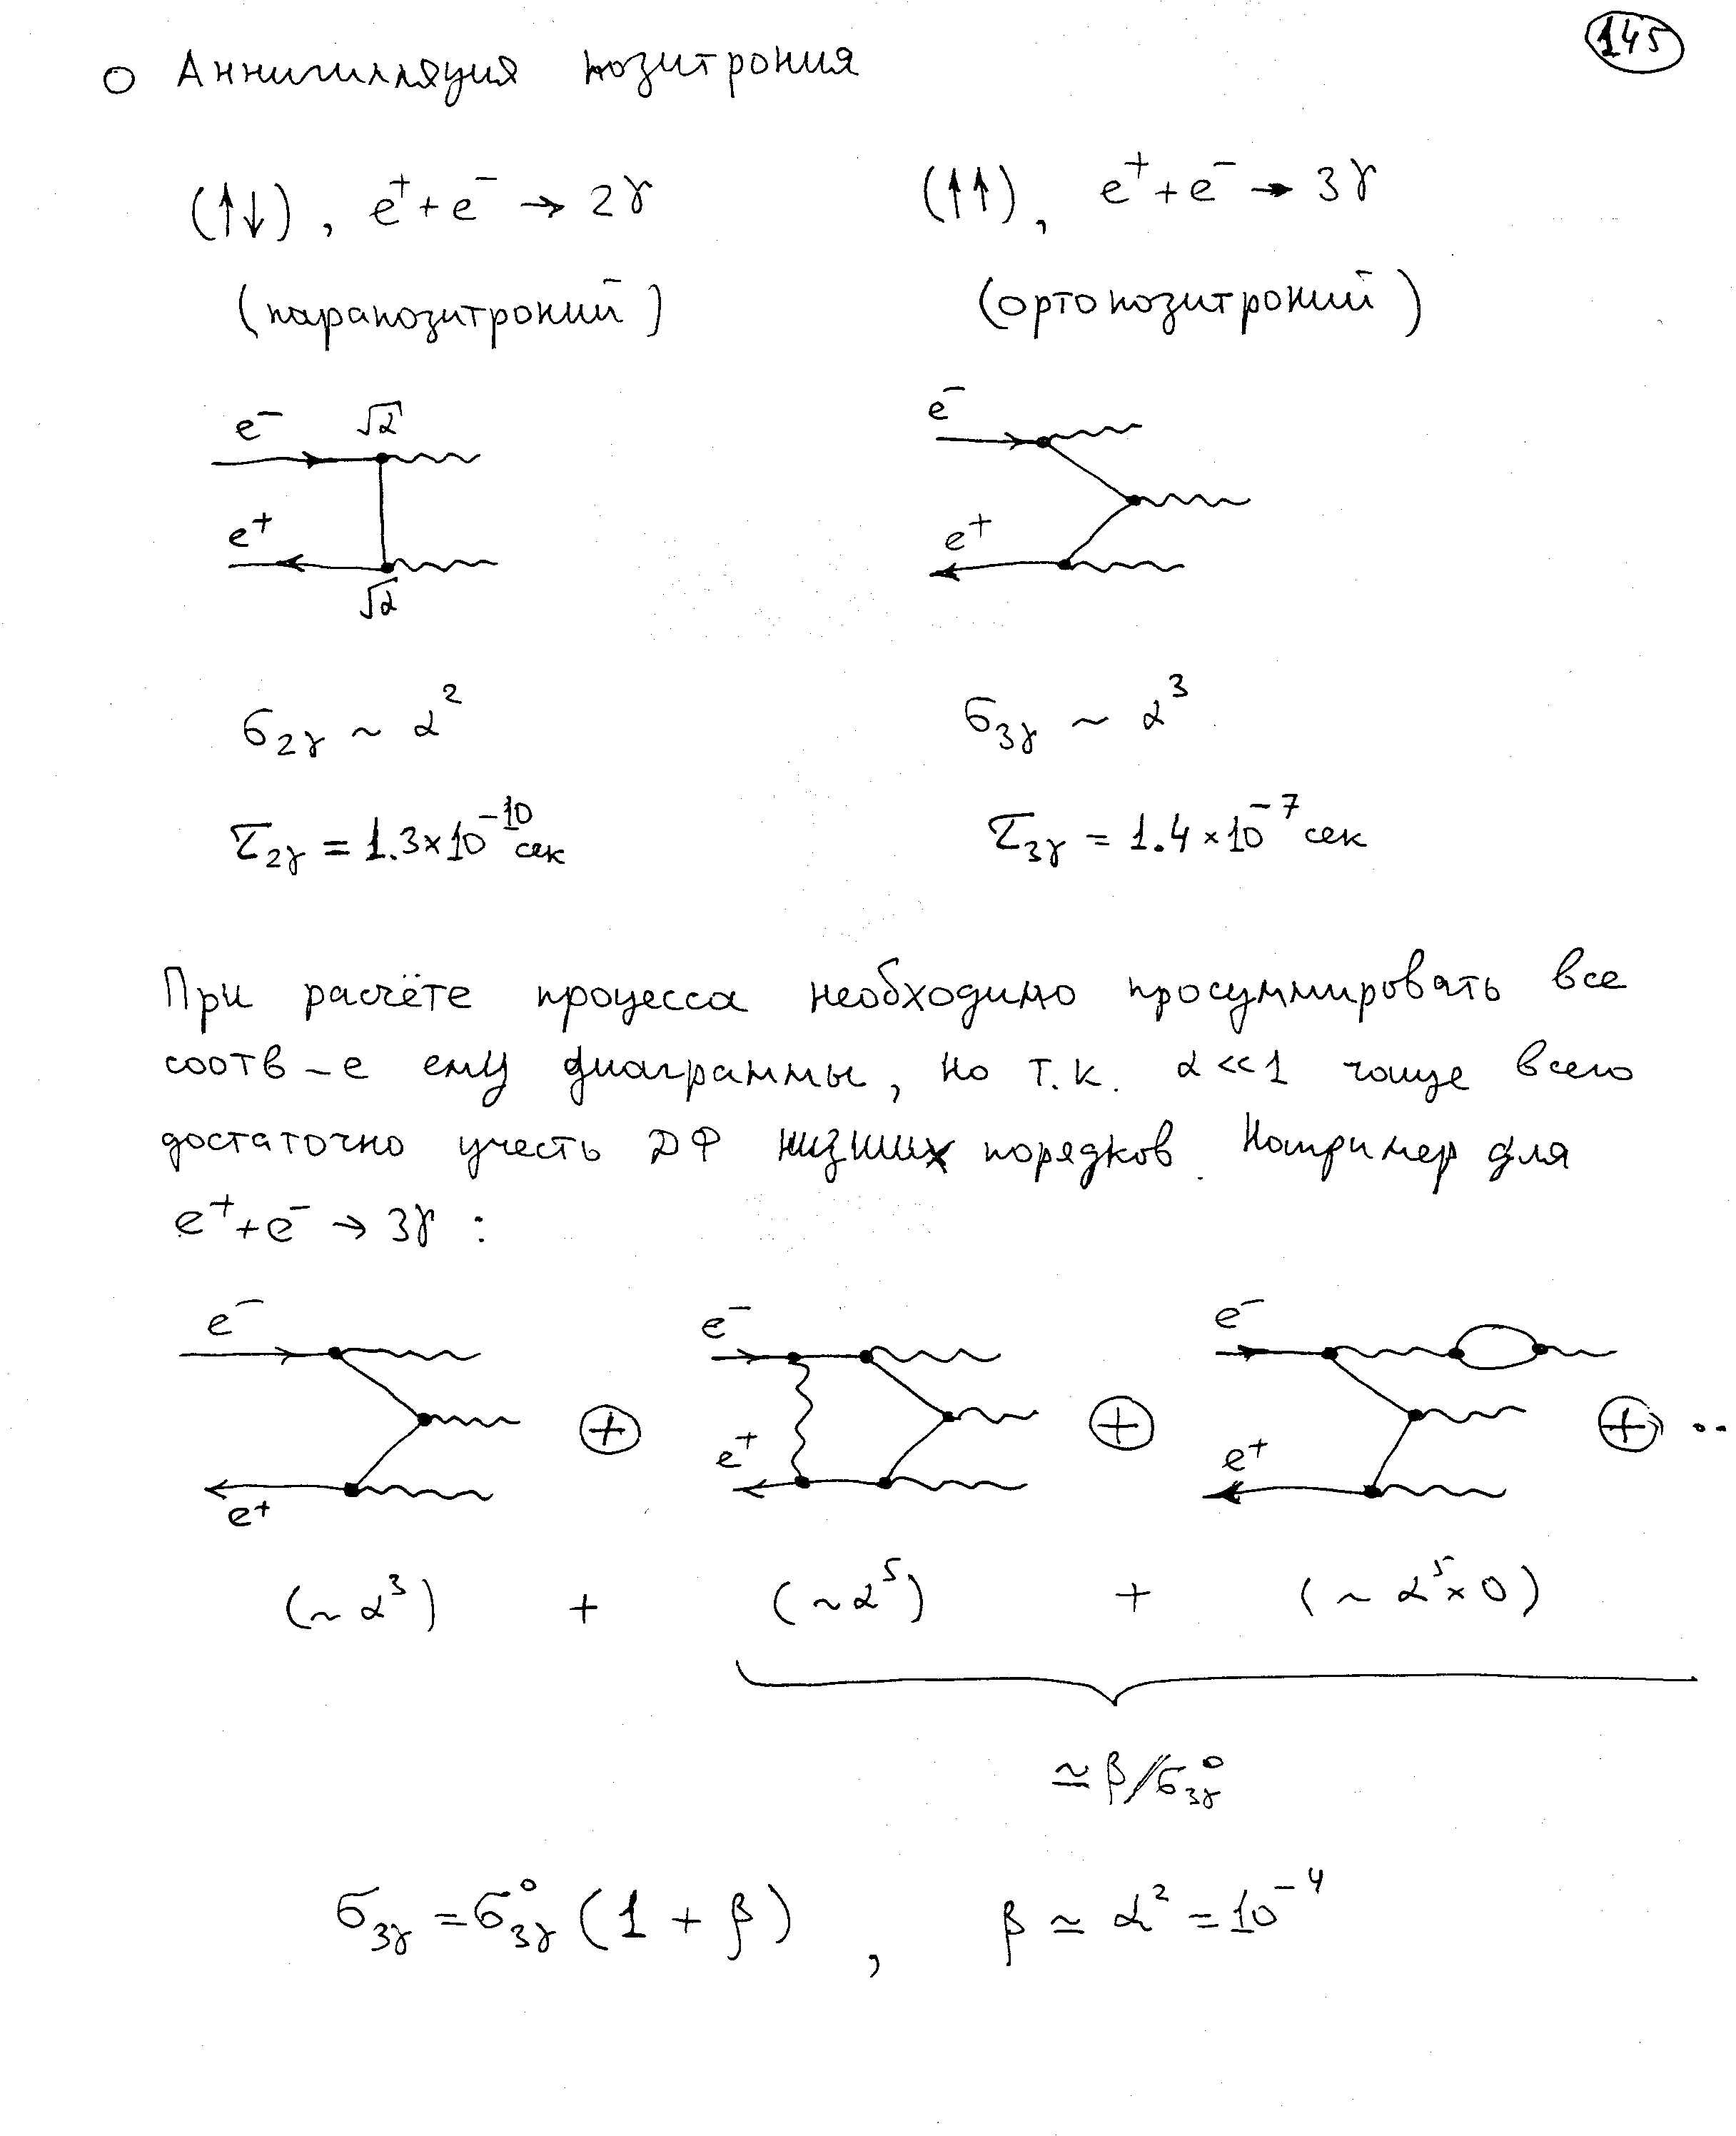 145
○ Аннигиляция позитрония
(↑↓), e⁺ + e⁻ → 2γ
(парапозитроний)
(↑↑), e⁺ + e⁻ → 3γ
(ортопозитроний)
e⁻ √α
e⁺
√α
e⁻
e⁺
σ₂γ ~ α²
σ₃γ ~ α³
τ₂γ = 1.3×10⁻¹⁰ сек
τ₃γ = 1.4×10⁻⁷ сек
При расчёте процесса необходимо просуммировать все
соотв-е ему диаграммы, но т.к. α<<1 чаще всего
достаточно учесть ДФ низших порядков. Например для
e⁺ + e⁻ → 3γ :
e⁻ e⁻ e⁻
⊕ ⊕ ⊕ ..
e⁺ e⁺ e⁺
(~α³) + (~α⁵) + (~α⁵×0)
≃ β/σ₃γ⁰
σ₃γ = σ₃γ⁰ (1 + β) , β ≃ α² = 10⁻⁴